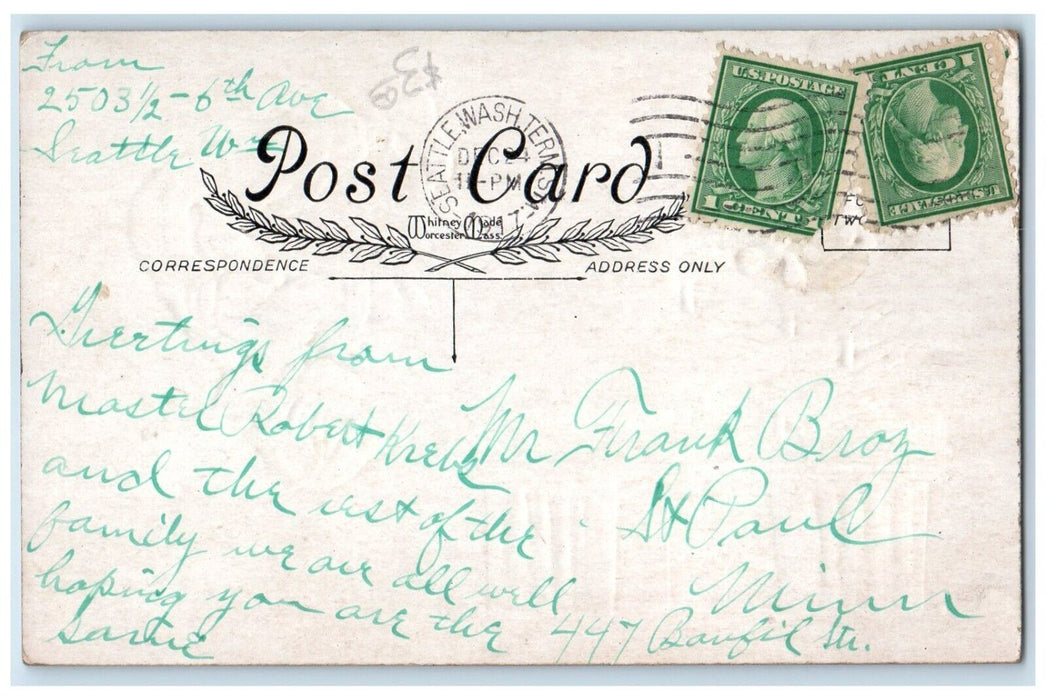 From
2503½ - 6th Ave
Seattle Wn
$3.00
SEATTLE, WASH. TERM. STA.
DEC 24
11-PM
U.S. POSTAGE
1 CENT 1
U.S. POSTAGE
1 CENT 1
Post Card
Whitney Made
Worcester, Mass.
TWO
CORRESPONDENCE
ADDRESS ONLY
Greetings from
Master Robert Krebs
and the rest of the
family we are all well
hoping you are the
same
Mr Frank Broz
St Paul
Minn
447 Banfil Str.